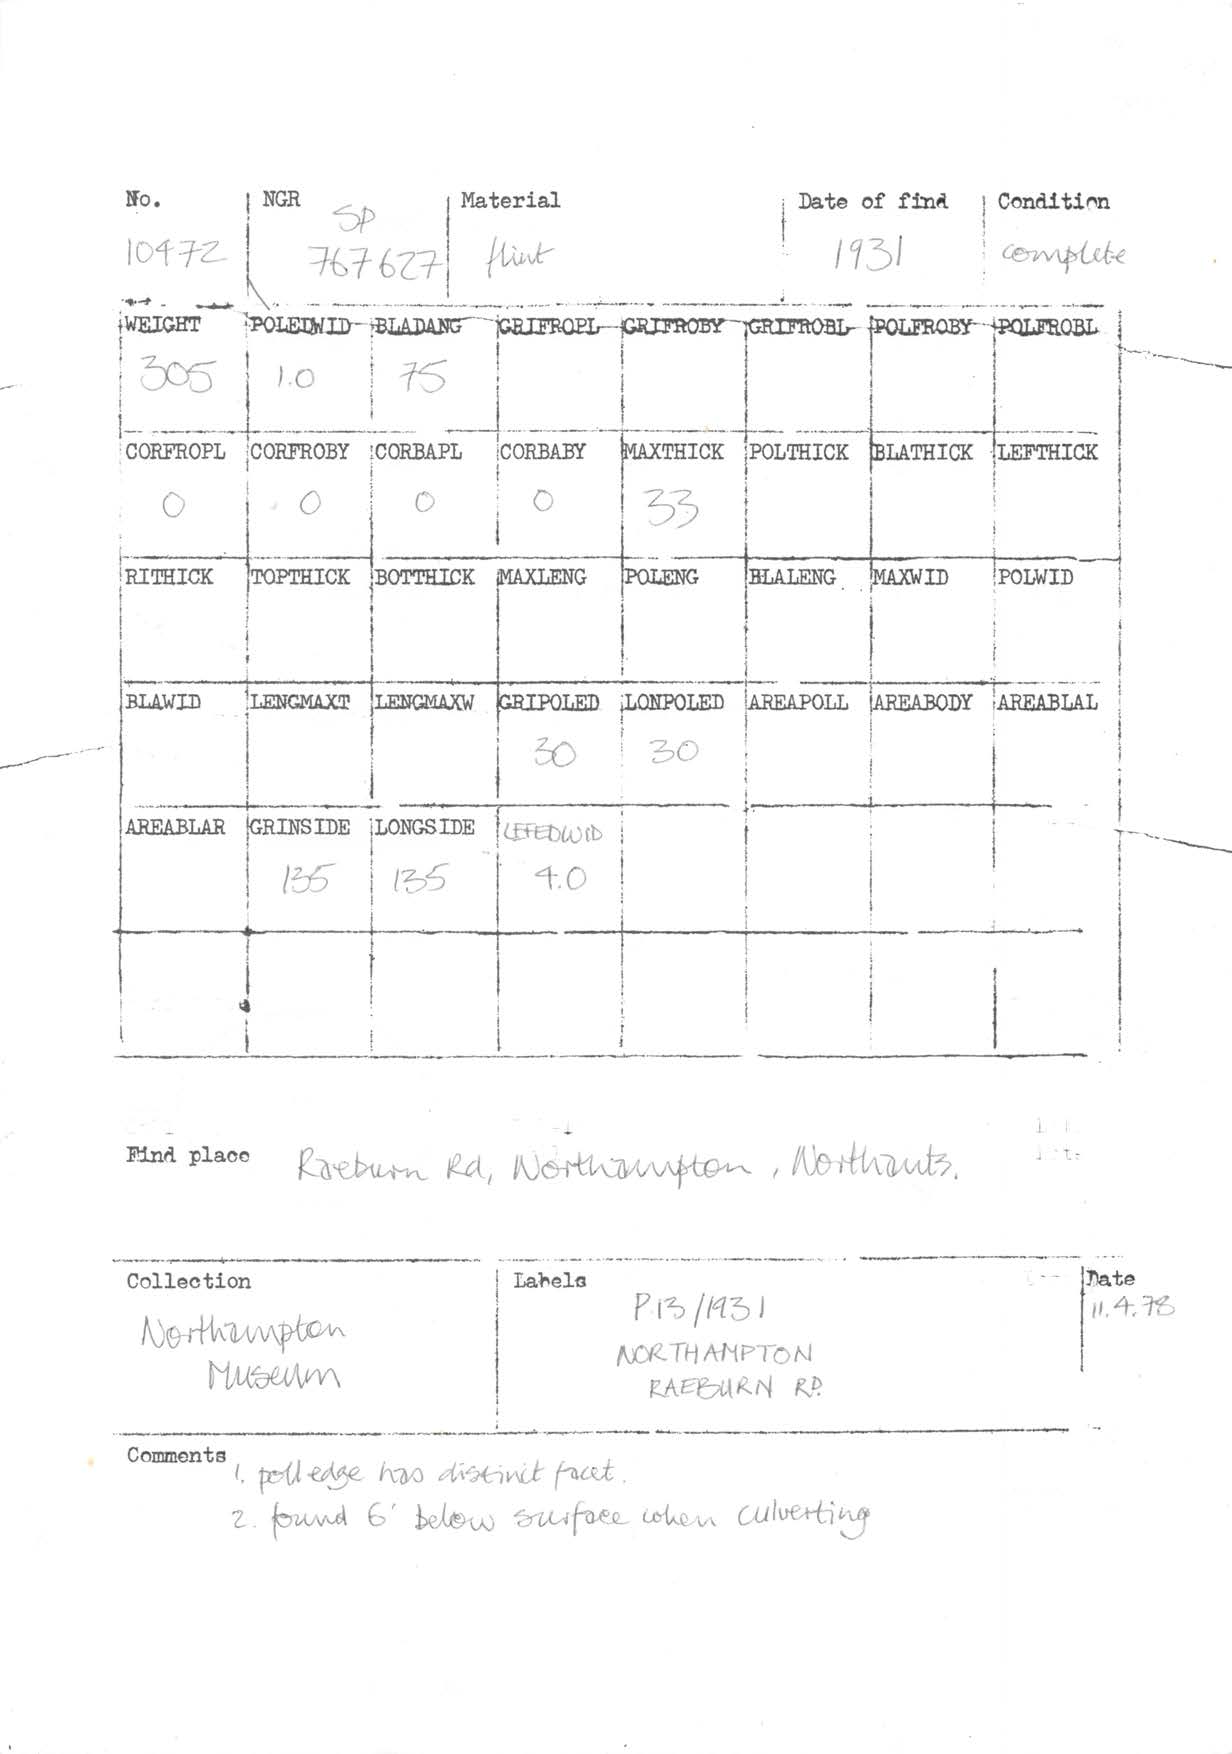 No. NGR Material Date of find Condition
SP
10472 767627 flint 1931 complete
WEIGHT POLEDWID BLADANG GRIFROPL GRIFROBY GRIFROBL POLFROBY POLFROBL
305 1.0 75
CORFROPL CORFROBY CORBAPL CORBABY MAXTHICK POLTHICK BLATHICK LEFTHICK
0 0 0 0 33
RITHICK TOPTHICK BOTTHICK MAXLENG POLENG BLALENG MAXWID POLWID
BLAWID LENGMAXT LENGMAXW GRIPOLED LONPOLED AREAPOLL AREABODY AREABLAL
30 30
AREABLAR GRINSIDE LONGSIDE LEFEDWID
135 135 4.0
Find place Raeburn Rd, Northampton, Northants.
Collection Labels Date
P.13/1931 11.4.78
Northampton NORTHAMPTON
Museum RAEBURN RD.
Comments 1. poll edge has distinct facet.
2. found 6' below surface when culverting